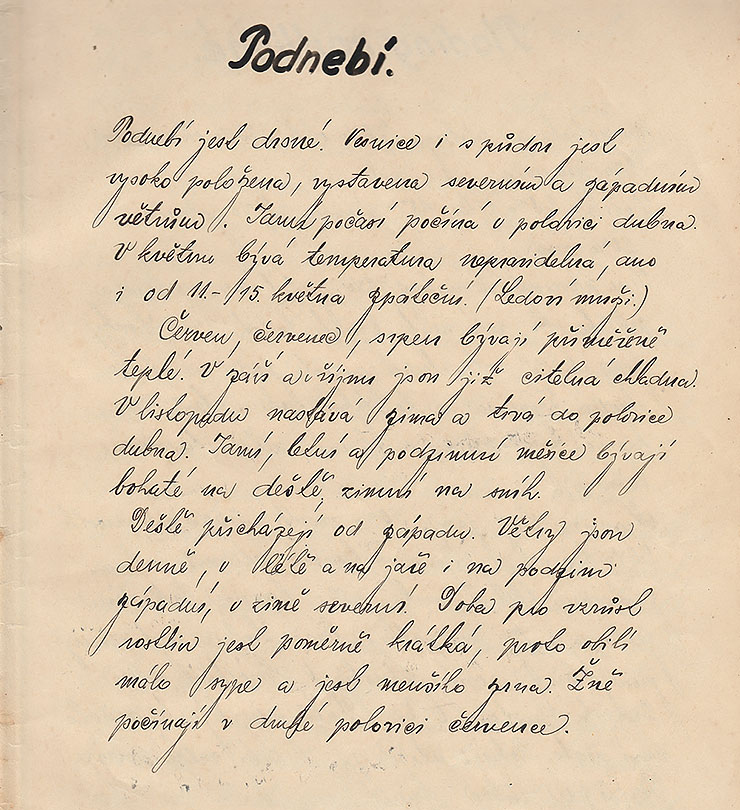 Podnebí.
Podnebí jest drsné. Vesnice i s půdou jest
vysoko položena, vystavena severním a západním
větrům. Jarní počasí počíná v polovici dubna.
V květnu bývá temperatura nepravidelná, ano
i od 11.-15. května zpáteční. (Ledoví muži.)
Červen, červenec, srpen bývají přiměřeně
teplé. V září a v říjnu jsou již citelná chladna.
V listopadu nastává zima a trvá do polovice
dubna. Jarní, letní a podzimní měsíce bývají
bohaté na deště, zimní na sníh.
Deště přicházejí od západu. Větry jsou
denně, v létě a na jaře i na podzim
západní, v zimě severní. Doba pro vzrůst
rostlin jest poměrně krátká, proto obilí
málo sype a jest menšího zrna. Žně
počínají v druhé polovici července.